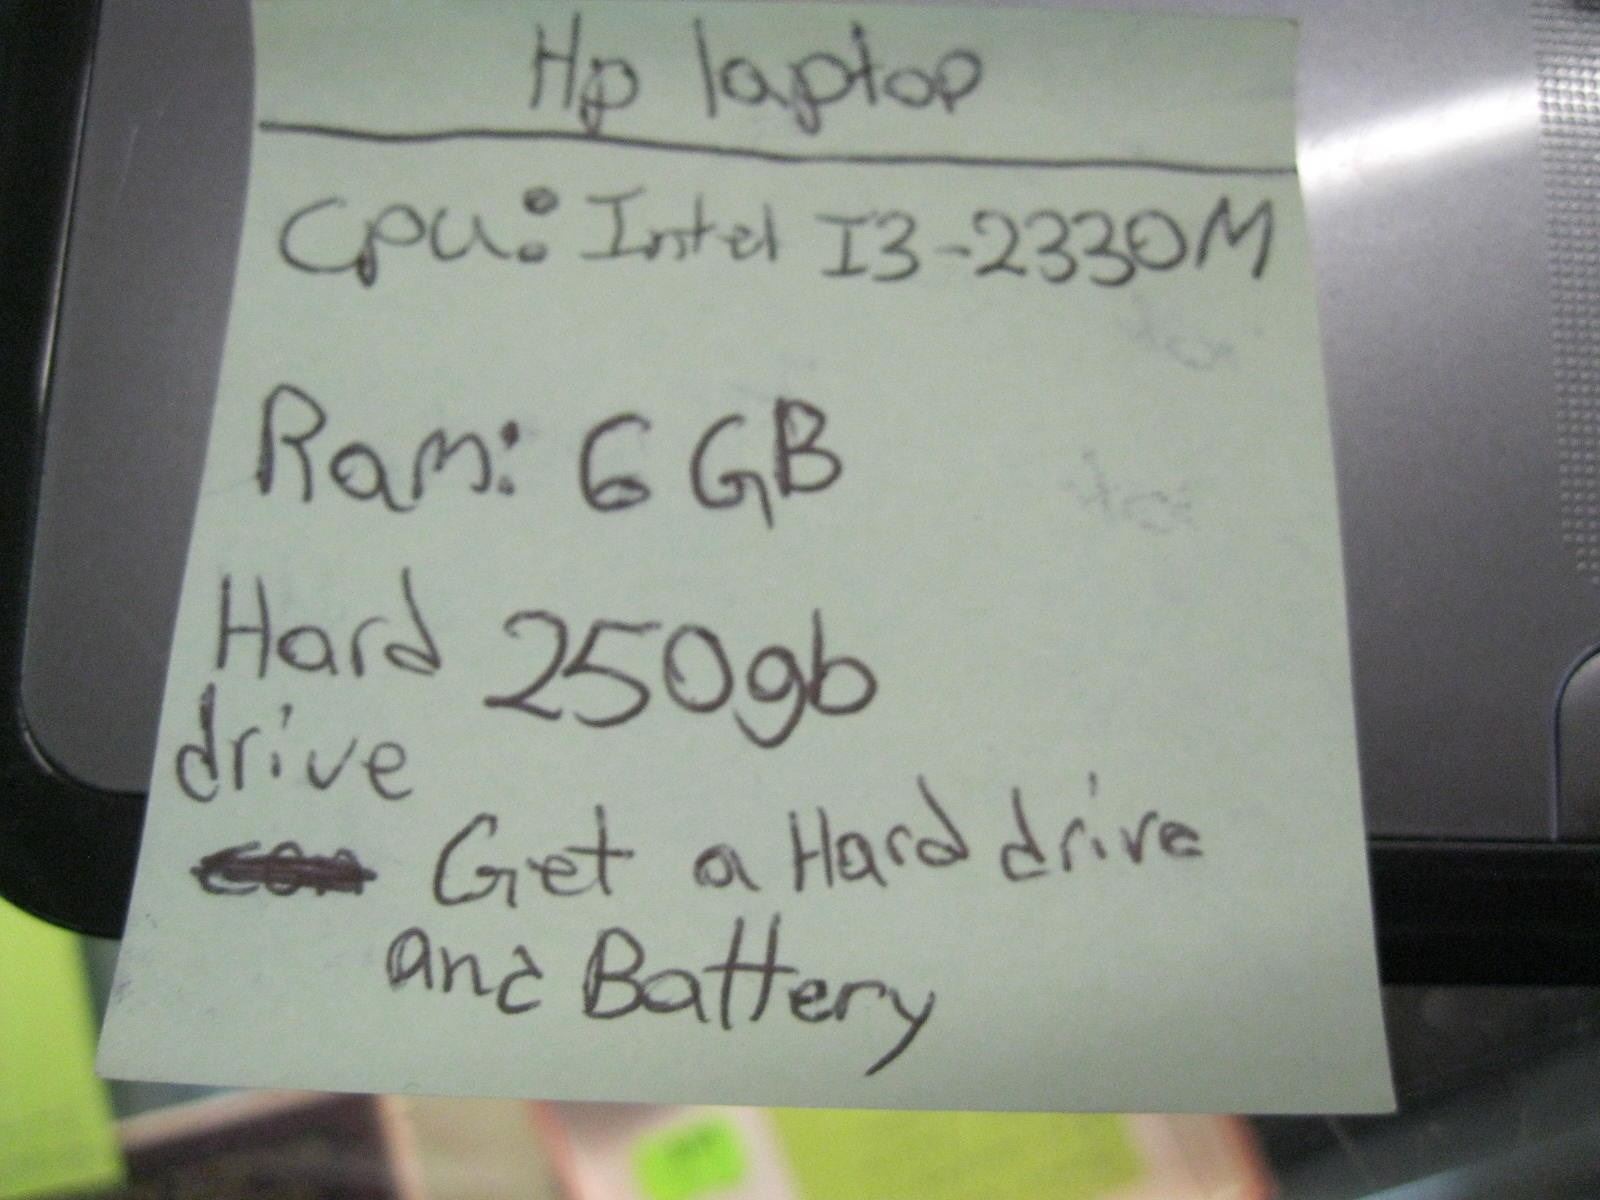 Hp laptop
Cpu: Intel I3-2330M
Ram: 6 GB
Hard 250gb
drive
Get a Hard drive
and Battery